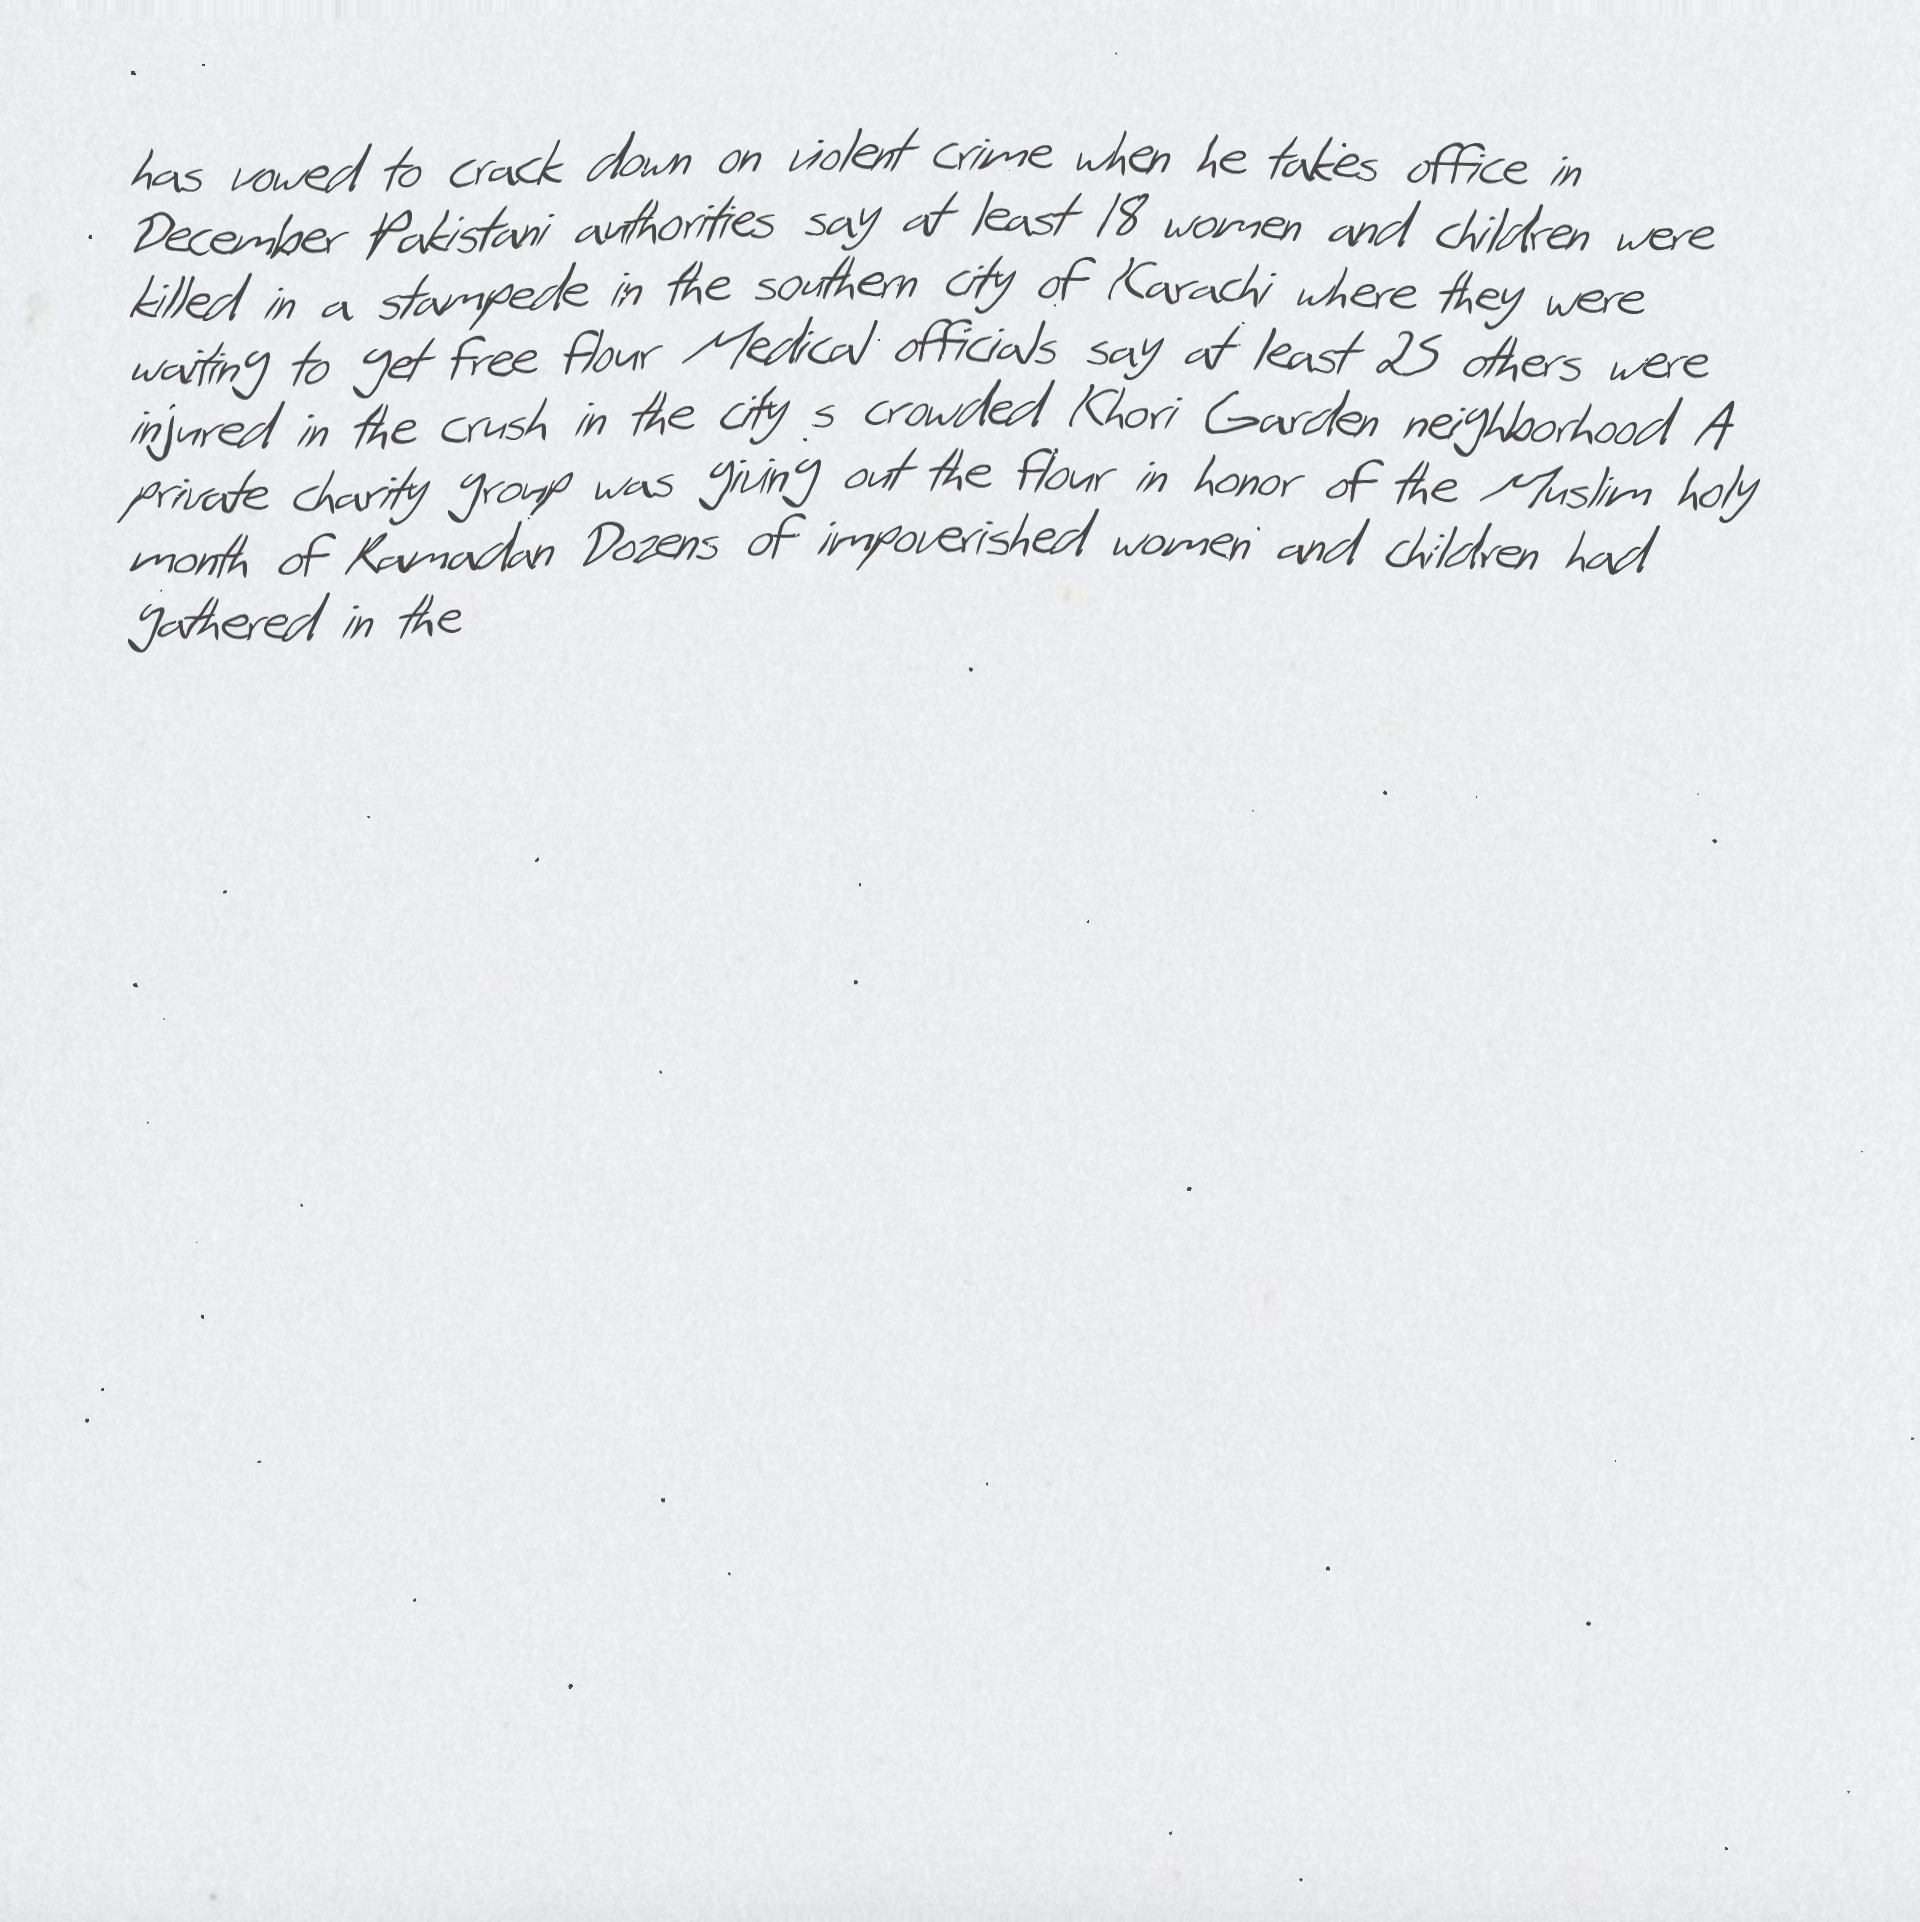 has vowed to crack down on violent crime when he takes office in
December Pakistani authorities say at least 18 women and children were
killed in a stampede in the southern city of Karachi where they were
waiting to get free flour Medical officials say at least 25 others were
injured in the crush in the city s crowded Khori Garden neighborhood A
private charity group was giving out the flour in honor of the Muslim holy
month of Ramadan Dozens of impoverished women and children had
gathered in the